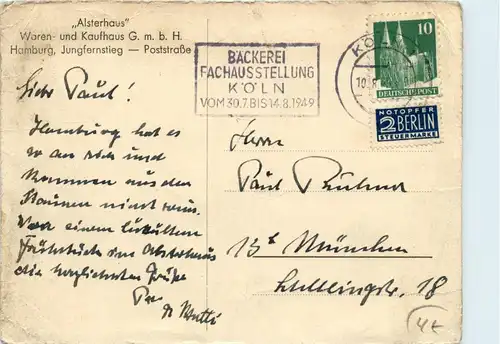 „Alsterhaus"
Waren- und Kaufhaus G. m. b. H.
Hamburg, Jungfernstieg — Poststraße
BÄCKEREI
FACHAUSSTELLUNG
KÖLN
VOM 30.7.BIS 14.8.1949
KÖLN
10
DEUTSCHE POST
NOTOPFER
2 BERLIN
STEUERMARKE
Lieber Paul!
Hamburg hat es
so an sich und
kommen aus dem
Staunen nicht raus.
Von einem
Frühstück im Alsterhaus
die herzlichsten Grüße
Herrn
Paul
13b München
18
4t